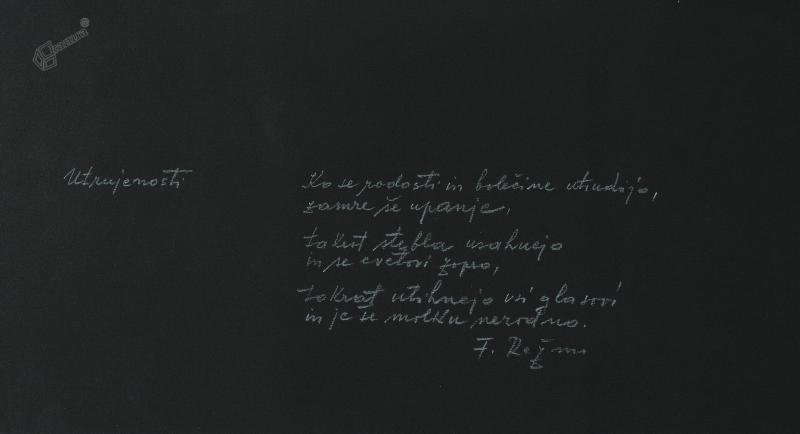 Kamra
Utrujenosti
Ko se radosti in bolečine utrudijo,
zamre še upanje,
takrat stebla usahnejo
in se cvetovi zapro,
takrat utihnejo vsi glasovi
in je še molku nerodno.
F. Režun